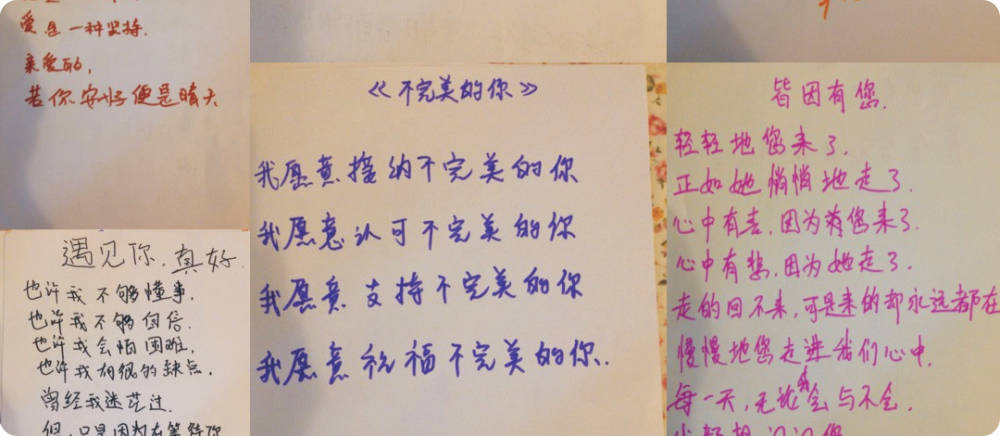 爱是一种坚持.
亲爱的,
若你安好便是晴天
遇见你.真好.
也许我不够懂事.
也许我不够自信.
也许我会怕困难.
也许我有很的缺点.
曾经我迷茫过.
但,只是因为在等待你
《不完美的你》
我愿意接纳不完美的你
我愿意认可不完美的你
我愿意支持不完美的你
我愿意祝福不完美的你.
皆因有您.
轻轻地您来了.
正如她悄悄地走了.
心中有喜,因为有您来了.
心中有愁,因为她走了.
走的回不来,可是来的却永远都在
慢慢地您走进我们心中.
每一天,无论我会与不会.